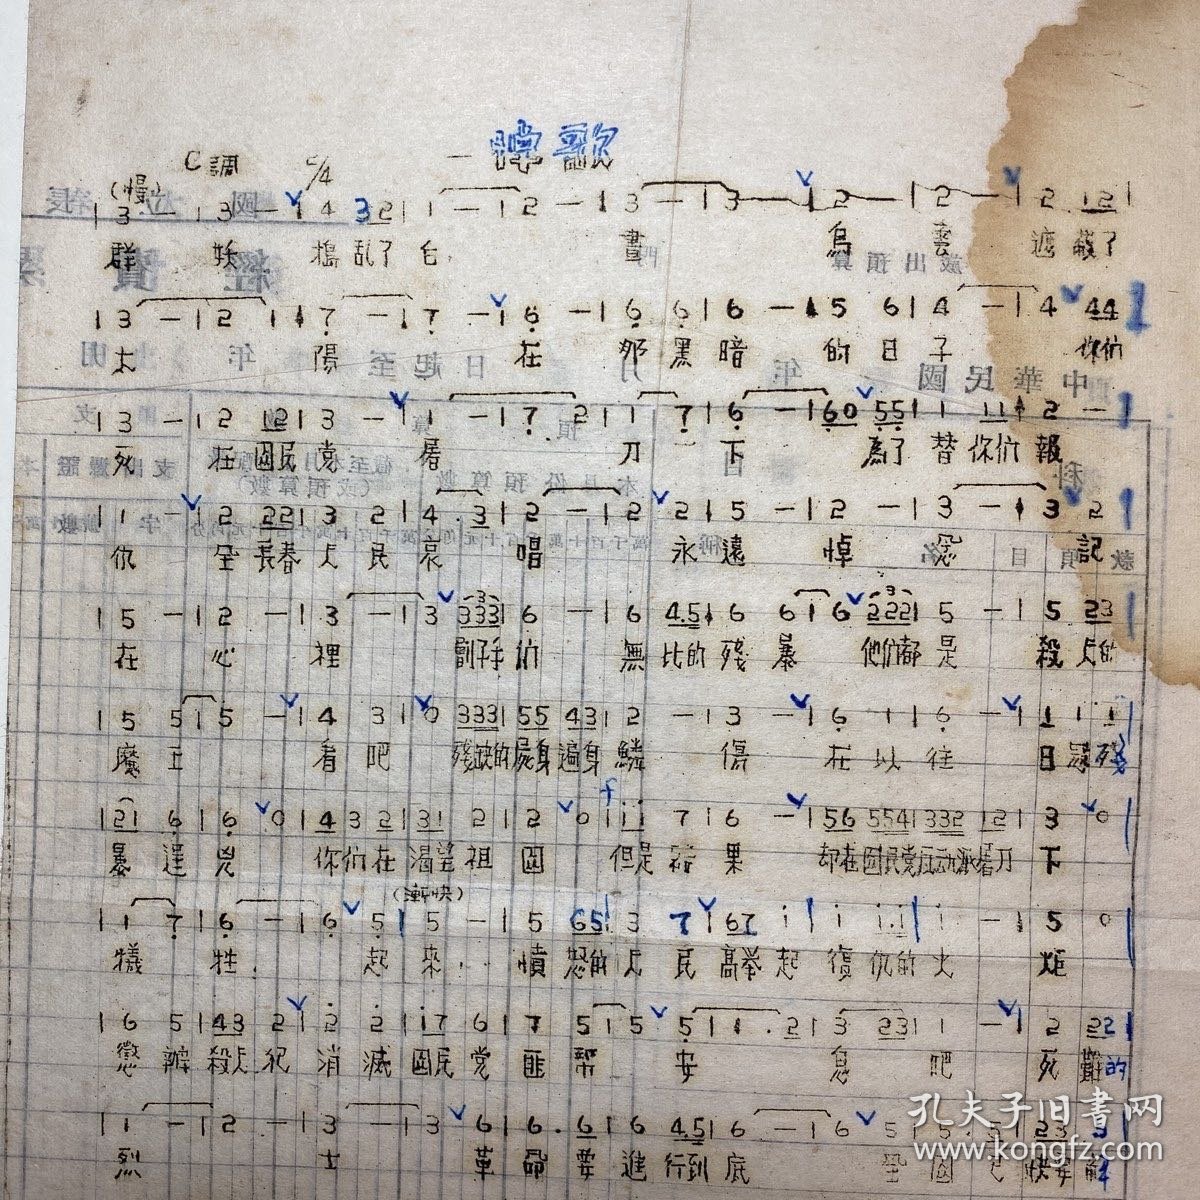 悼歌
C調 2/4
(慢)
| 3 — | 3 — | 4 32 | 1 — | 2 — | 3 — | 3 — | 2 — | 2 — | 2 12 |
群 妖 搗乱了台 晝 烏雲 遮蔽了
| 3 — | 2 1 | 7 — | 7 — | 6 — | 6 6 | 6 — | 5 6 | 4 — | 4 44 |
太 陽 在 那黑暗 的日子 你们
| 3 — | 2 12 | 3 — | 1 — | 7 2 | 1 7 | 6 — | 60 55 | 1 11 | 2 — |
死 在國民党 屠 刀 下 爲了替你们報
| 1 — | 2 22 | 3 2 | 4 . 3 | 2 — | 2 2 | 5 — | 2 — | 3 — | 3 2 |
仇 全長春人民哀 唱 永遠 悼 記
| 5 — | 2 — | 3 — | 3 333 | 6 — | 6 4.5 | 6 6 | 6 222 | 5 — | 5 23 |
在 心 裡 劊子手们 無比的殘暴 他们都是 殺人的
| 5 5 | 5 — | 4 3 | 0 333 | 55 43 | 2 — | 3 — | 6 1 | 6 — | 1 1 1 |
魔王 看吧 殘缺的屍身遍身鱗 傷 在以往 日寇殘
| 21 6 | 6 0 | 4 3 2 | 31 2 | 2 0 | 11 7 | 6 — | 56 554 | 332 12 | 3 0 |
暴逞兇 你们在渴望祖國 但是結果 却在國民党反动派屠刀 下
(漸快)
| 1 7 | 6 — | 6 5 | 5 — | 5 65 | 3 7 | 67 i | i i.i | i — | 5 0 |
犧 牲 起來 憤怒的人民高举起復仇的火 炬
| 6 5 | 43 2 | 2 2 | i7 6 | 7 5 | 5 5 | 1 . 2 | 3 23 | 1 — | 2 22 |
懲辦殺人犯 消滅國民党匪幫 安 息 吧 死難的
| 1 — | 2 — | 3 — | 3 6 | 6 . 6 | 4.5 | 6 — | 6 5
烈 士 革命要進行到底 全國
國
經
歲出預算
中華民國 年 月 日起至 年
預算
科目
款項目
名稱
本月份預算數
截至本月
(或預算數)
孔夫子旧書网
www.kongfz.com